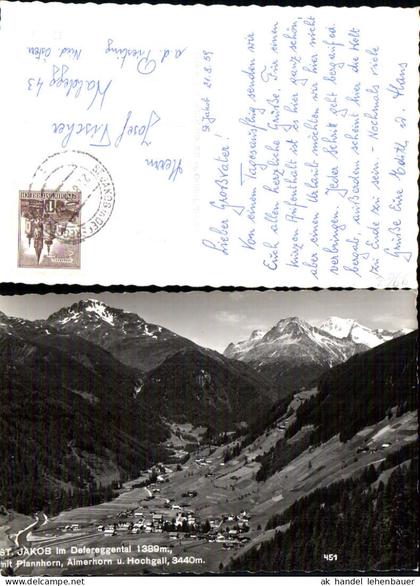 St. Jakob 21.8.59
Lieber Großvater!
Von einem Tagesausflug senden wir
Euch allen herzliche Grüße. Für einen
kurzen Aufenthalt ist es hier ganz schön,
aber einen Urlaub möchten wir hier nicht
verbringen. Jeder Schritt geht bergauf od.
bergab, außerdem scheint hier die Welt
zu Ende zu sein. - Nochmals viele
Grüße Eure Edith u. Hans
Herrn
Josef Fischer
Waldegg 43
a. d. Piesting
Nied. Österr.
ST. JAKOB im Defereggental 1389m.,
mit Plannhorn, Almerhorn u. Hochgall, 3440m.
451
ak handel lehenbauer